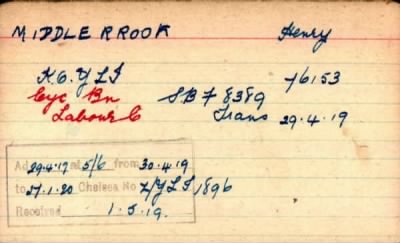 MIDDLERROOK Henry
K.O.Y.L.I 76153
Cyc Bn SB7 8389
Labour C Trans 29.4.19
Ad 29.4.19 at 5/6 from 30.4.19
to 27.1.20 Chelsea No Z/YLI 1896
Received 1.5.19.